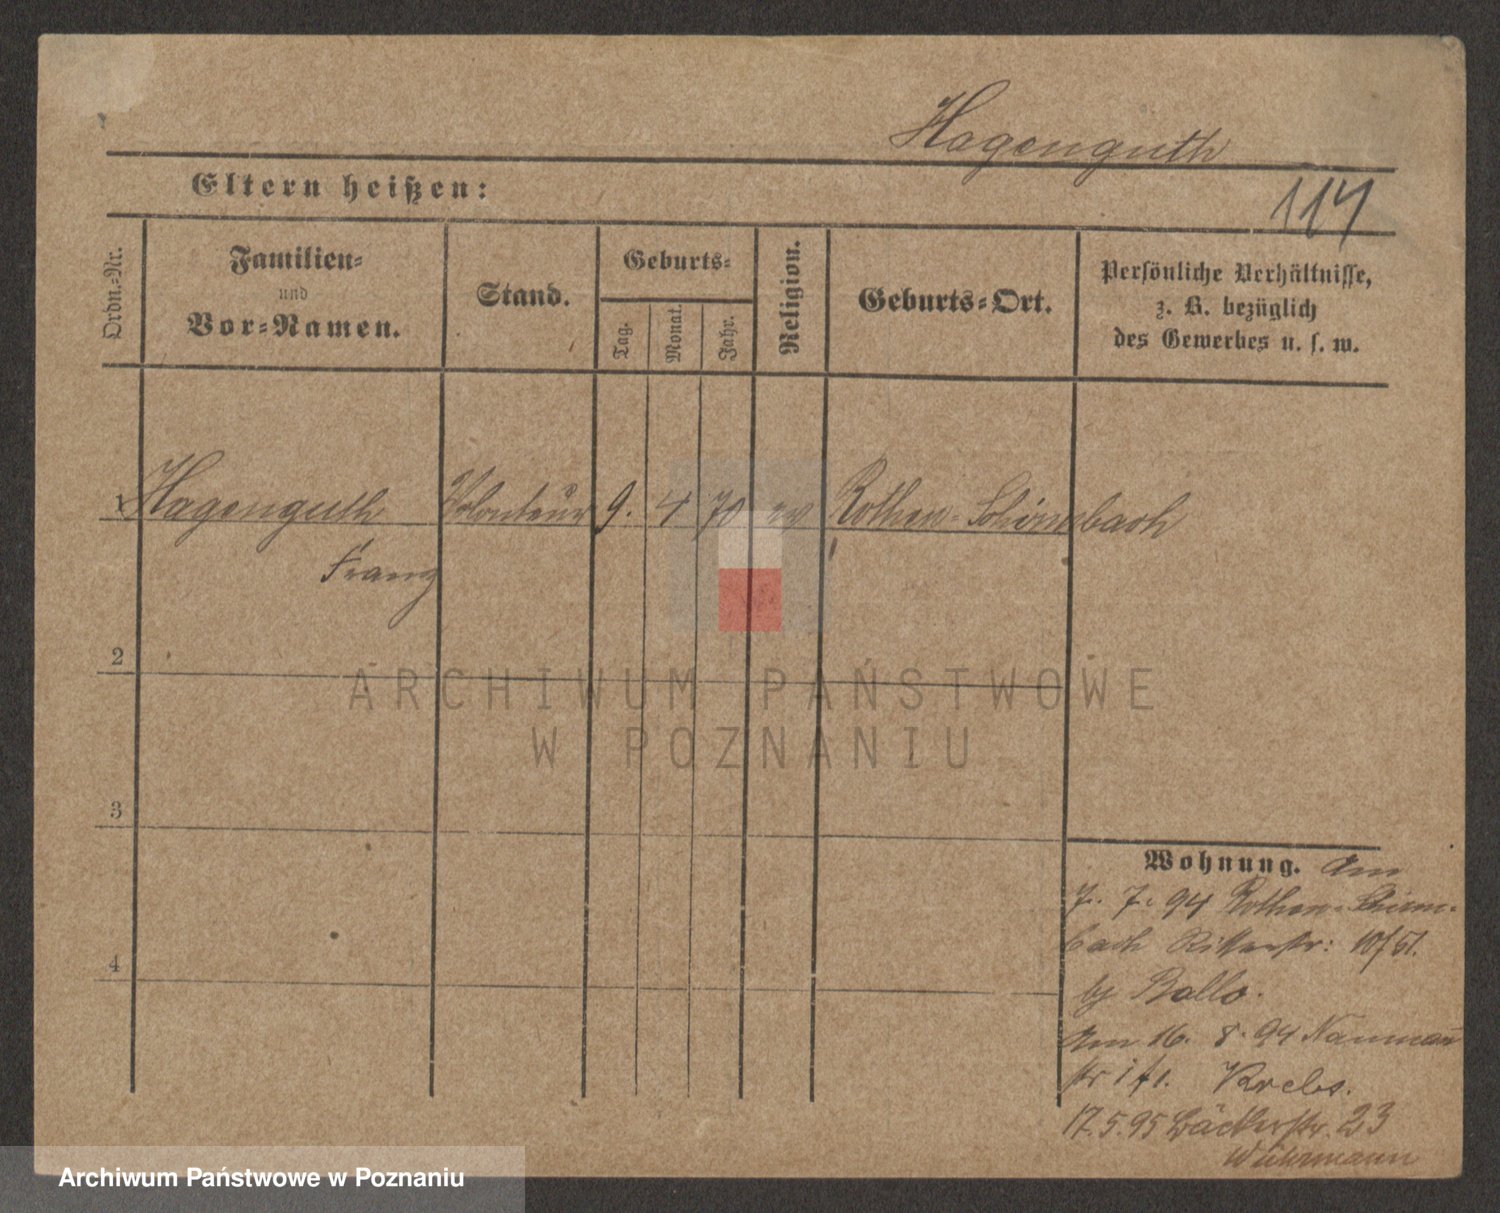 Hagenguth
Eltern heißen:
114
Ordn.-Nr.
Familien-
und
Vor-Namen.
Stand.
Geburts-
Tag.
Monat.
Jahr.
Religion.
Geburts-Ort.
Persönliche Verhältnisse,
z. B. bezüglich
des Gewerbes u. s. w.
1 Hagenguth Volonteur 9. 4 70 ev Rothen-Schirmbach
Franz
2
3
4
Wohnung. Am
7. 7. 94 Rothen-Schirm-
bach Ritterstr: 10/51.
by Ballo.
Am 16. 8. 94 Naumann
str Krebs.
17.5.95 Bäckerstr. 23
Wuhrmann
ARCHIWUM PAŃSTWOWE
W POZNANIU
Archiwum Państwowe w Poznaniu